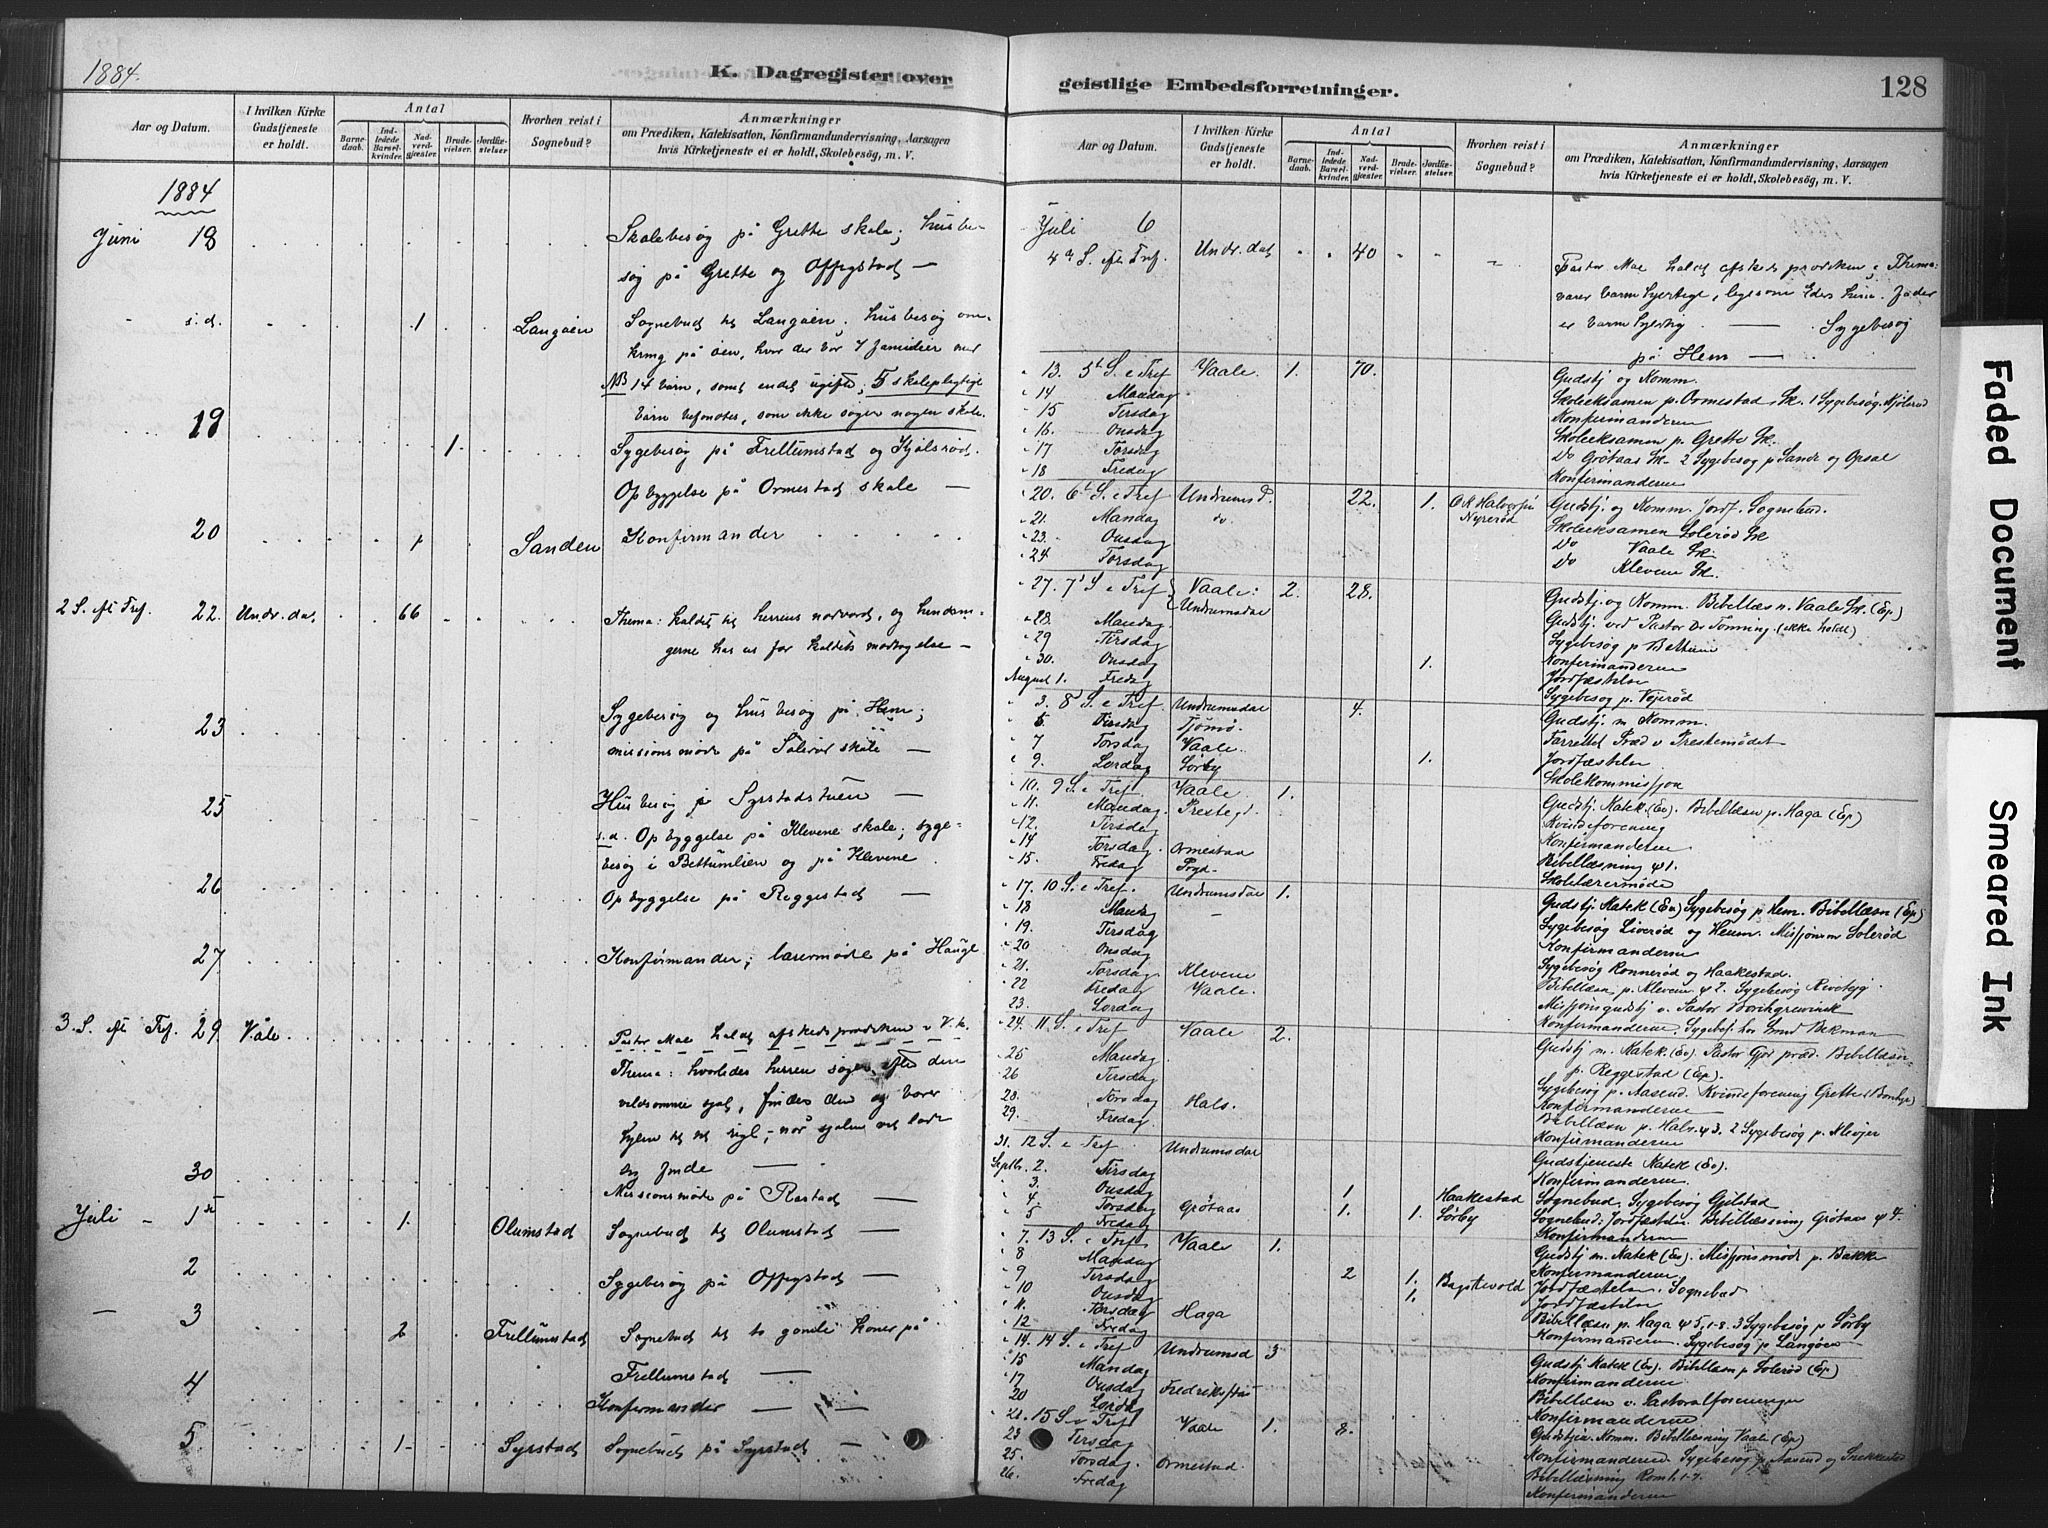 1884.
K. Dagregister over
Aar og Datum.
I hvilken Kirke Gudstjeneste er holdt.
Antal
Barne-daab.
Ind-ledede Barsel-kvinder.
Nad-verd-gjæster.
Brude-vielser.
Jordfæ-stelser
Hvorhen reist i Sognebud?
Anmærkninger
om Prædiken, Katekisation, Konfirmandundervisning, Aarsagen
hvis Kirketjeneste ei er holdt, Skolebesøg, m. V.
1884
Juni 18 Skolebesøg på Grette skole; husbe-
søg på Grette og Offigstad —
s.d. 1 Langøen Sognebud til Langøen. Husbesøg om-
kring på øen, hvor der bor 7 familier med
NB 14 børn, samt endel ugifte; 5 skolepligtige
børn befandtes, som ikke søger nogen skole.
19 1. Sygebesøg på Frellumstad og Kjølsrød.
Opbyggelse på Ormestad skole —
20 1 Sanden Konfirmander
2 S. eft. Tref. 22. Undr.dal 66 Thema: kaldet til herrens nadverd, og hindrin-
gerne hos os for kaldets modtagelse —
23 Sygebesøg og husbesøg på Hem;
missionsmøde på Solerød skole —
25 Husbesøg på Syrstadstuen —
s.d. Opbyggelse på Klevene skole; syge-
besøg i Bettumlien og på Klevene.
26 Opbyggelse på Reggestad —
27 Konfirmander; lærermøde på Haugl
3. S. eft. Tref. 29 Våle. Pastor Moe holdt afskedsprædiken i V. k.
Thema: hvorledes herren søger efter den
vildsomme sjæl, finder den og bærer
hjem til sit rige; — når sjælen vil lade
sig finde —
30 Missionsmøde på Rastad —
Juli — 1st 1. Olumstad Sognebud til Olumstad —
2 Sygebesøg på Offigstad —
3 2 Frellumstad Sognebud til to gamle koner på
Frellumstad —
4 Konfirmander — —
5 1 Syrstad Sognebud på Syrstad —
geistlige Embedsforretninger.
128
Aar og Datum.
I hvilken Kirke Gudstjeneste er holdt.
Antal
Barne-daab.
Ind-ledede Barsel-kvinder.
Nad-verd-gjæster.
Brude-vielser.
Jordfæ-stelser.
Hvorhen reist i Sognebud?
Anmærkninger
om Prædiken, Katekisation, Konfirmandundervisning, Aarsagen
hvis Kirketjeneste ei er holdt, Skolebesøg, m. V.
Juli 6
4de S. eft. Tref. Undr.dal 40 Pastor Moe holdt afskedsprædiken. Thema:
værer barmhjertige, ligesom Eders himm. Fader
er barmhjertig — Sygebesøg
på Hem —
13. 5t S. e Tref Vaale. 1. 70. Gudstj og Komm.
14 Mandag Skoleeksamen p. Ormestad Sk. 1 Sygebesøg. Kjølsrød
15 Tirsdag Konfirmanderne
16. Onsdag Skoleeksamen p. Grette Sk.
17 Torsdag Do Grøtaas Sk. 2 Sygebesøg p Sande og Opsal
18 Fredag Konfirmanderne
20. 6t S. e Tref Undrumsd. 22. 1. Nyrerød Gudstj. og Komm. Jordf. Sognebud.
21. Mandag do. Skoleeksamen Solerød Sk
23. Onsdag Do Vaale Sk.
24 Torsdag Do Klevene Sk.
27. 7' S e Tref Vaale: Undrumsdal 2. 28. Gudstj. og Komm. Bibellæsn. Vaale Sk. (Ep)
Gudstj. ved Pastor Dr Tonning (ikke holdt)
28. Mandag Sygebesøg p Bettum
29 Tirsdag Konfirmanderne
30. Onsdag 1. Jordfæstelse
August 1. Fredag Sygebesøg p. Vejerød
3. 8 S. e Tref. Undrumsdal 4. Gudstj. m. Komm.
5 Tirsdag Tjømø. Forrettet Præd v Prestemødet
7 Torsdag Vaale. 1. Jordfæstelse
9. Lørdag Sørby Skolekommissjon
10. 9 S. e Tref. Vaale 1. Gudstj. Katek (Ev). Bibellæsn p. Haga (Ep)
11. Mandag Prestegd. Kvindeforening
12. Tirsdag Konfirmanderne
14 Torsdag Ormestad Bibellæsning ψ1.
15. Fredag Prgd. Skolelærermøde
17. 10 S. e Tref. Undrumsdal 1. Gudstj. Katek (Ev) Sygebesøg p Hem. Bibellæsn (Ep)
18 Mandag Sygebesøg Liverød og Heum. Missjonsm Solerød
19. Tirsdag Konfirmanderne
20 Onsdag Sygebesøg Ronnerød og Haakestad.
21. Torsdag Klevene Bibellæsn p. Klevene ψ2. Sygebesøg
22 Fredag Vaale. Missjonsgudstj. v. Pastor Borchgrevink
23. Lørdag Konfirmanderne. Sygebes. hos Smed Bekman
24. 11 S. e Tref Vaale 2. Gudstj m. Katek (Ev). Pastor Gjør præd. Bibellæsn
p. Reggestad (Ep).
25 Mandag Sygebesøg p. Aasrud. Kvindeforening Grette
26 Tirsdag Konfirmanderne
28. Torsdag Hals. Bibellæsn p. Hals ψ3. 2 Sygebesøg p. Klevjer
29. Fredag Konfirmanderne
31. 12 S. e Tref. Undrumsdal Gudstjeneste Katek (Ev).
Septbr. 2. Tirsdag Konfirmanderne
3. Onsdag 1 Haakestad Sognebud. Sygebesøg Gjelstad
4 Torsdag Grøtaas 1. 1. Sørby Sognebud: Jordfæstelse. Bibellæsning Grøtaas ψ4.
5 Fredag Konfirmanderne
7. 13 S. e Tref Vaale 1. Gudstj m. Katek (Ev). Missjonsmøde p. Bakke
8 Mandag Konfirmanderne
9 Tirsdag 2 1. Bagstevold Jordfæstelse. Sognebud
10 Onsdag 1. Jordfæstelse
11. Torsdag Haga Bibellæsn p. Haga ψ5, 1-8. 3 Sygebesøg p Sørby
12 Fredag Konfirmanderne. Sygebesøg p Langøen
14. 14 S. e Tref Undrumsd 3 Gudstj Katek (Ev). Bibellæsn p Solerød (Ep)
15 Mandag Konfirmanderne.
17 Onsdag Bibellæsn v. Pastoralforeningen
20 Lørdag Konfirmanderne
21. 15 S. e Tref Vaale 1. 8. Gudstjn. Komm. Bibellæsning Vaale (Ep)
23 Tirsdag Konfirmanderne. Sygebesøg p Aasrud og Snekkestad
25. Torsdag. Ormestad. Bibellæsning Rom. 1. 1-7.
26. Fredag Konfirmanderne
Faded Document
Smeared Ink